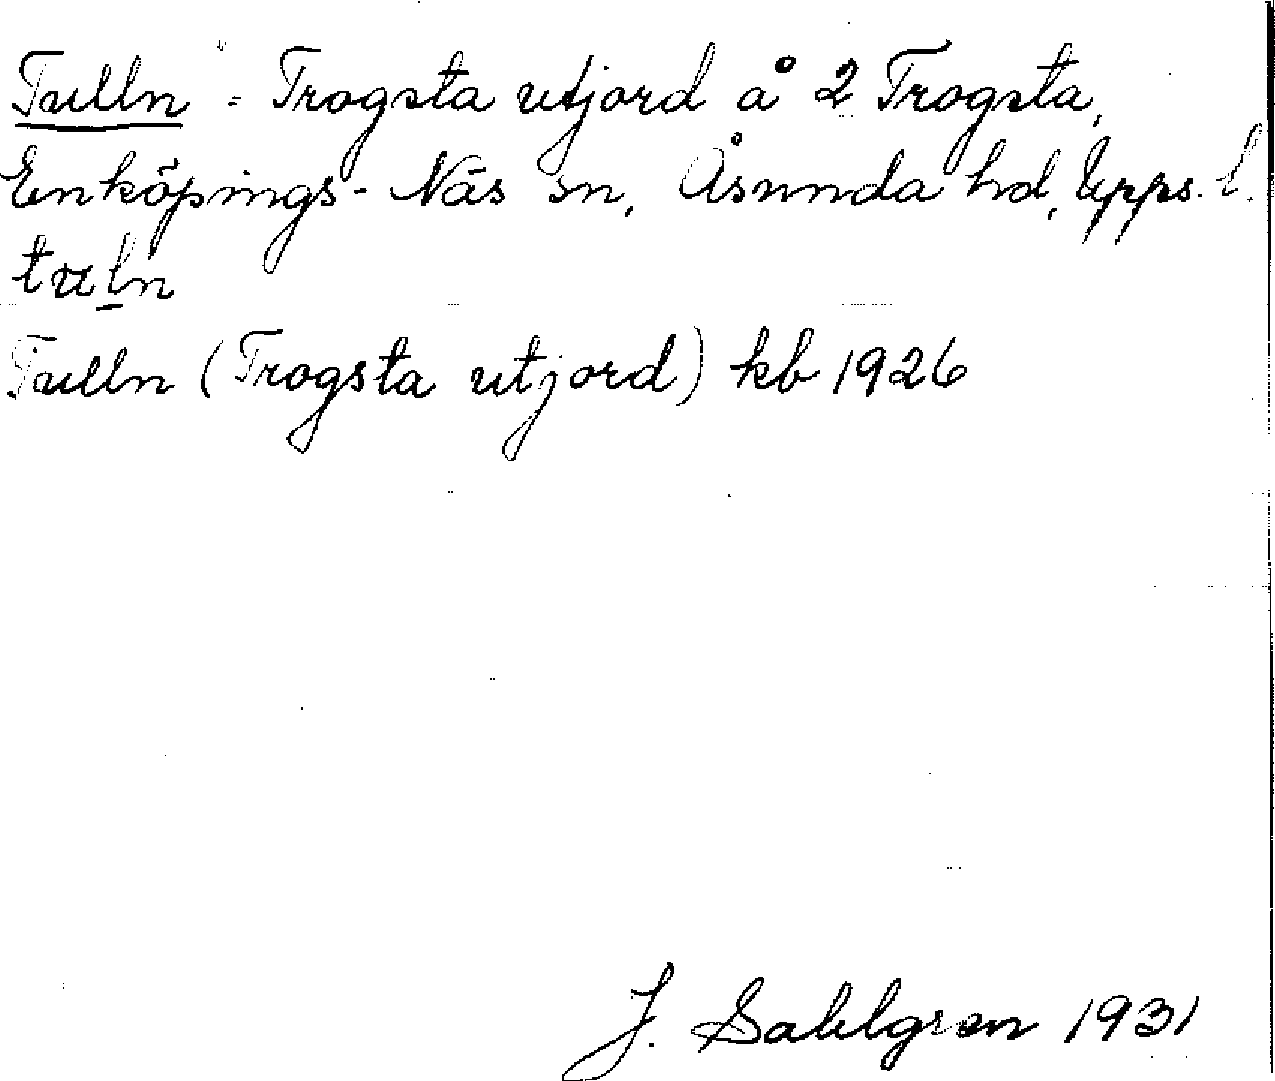 Tulln = Trogsta utjord å 2 Trogsta,
Enköpings-Näs sn, Åsunda hd, Upps. l.
tuln
Tulln (Trogsta utjord) kb 1926
J. Sahlgren 1931